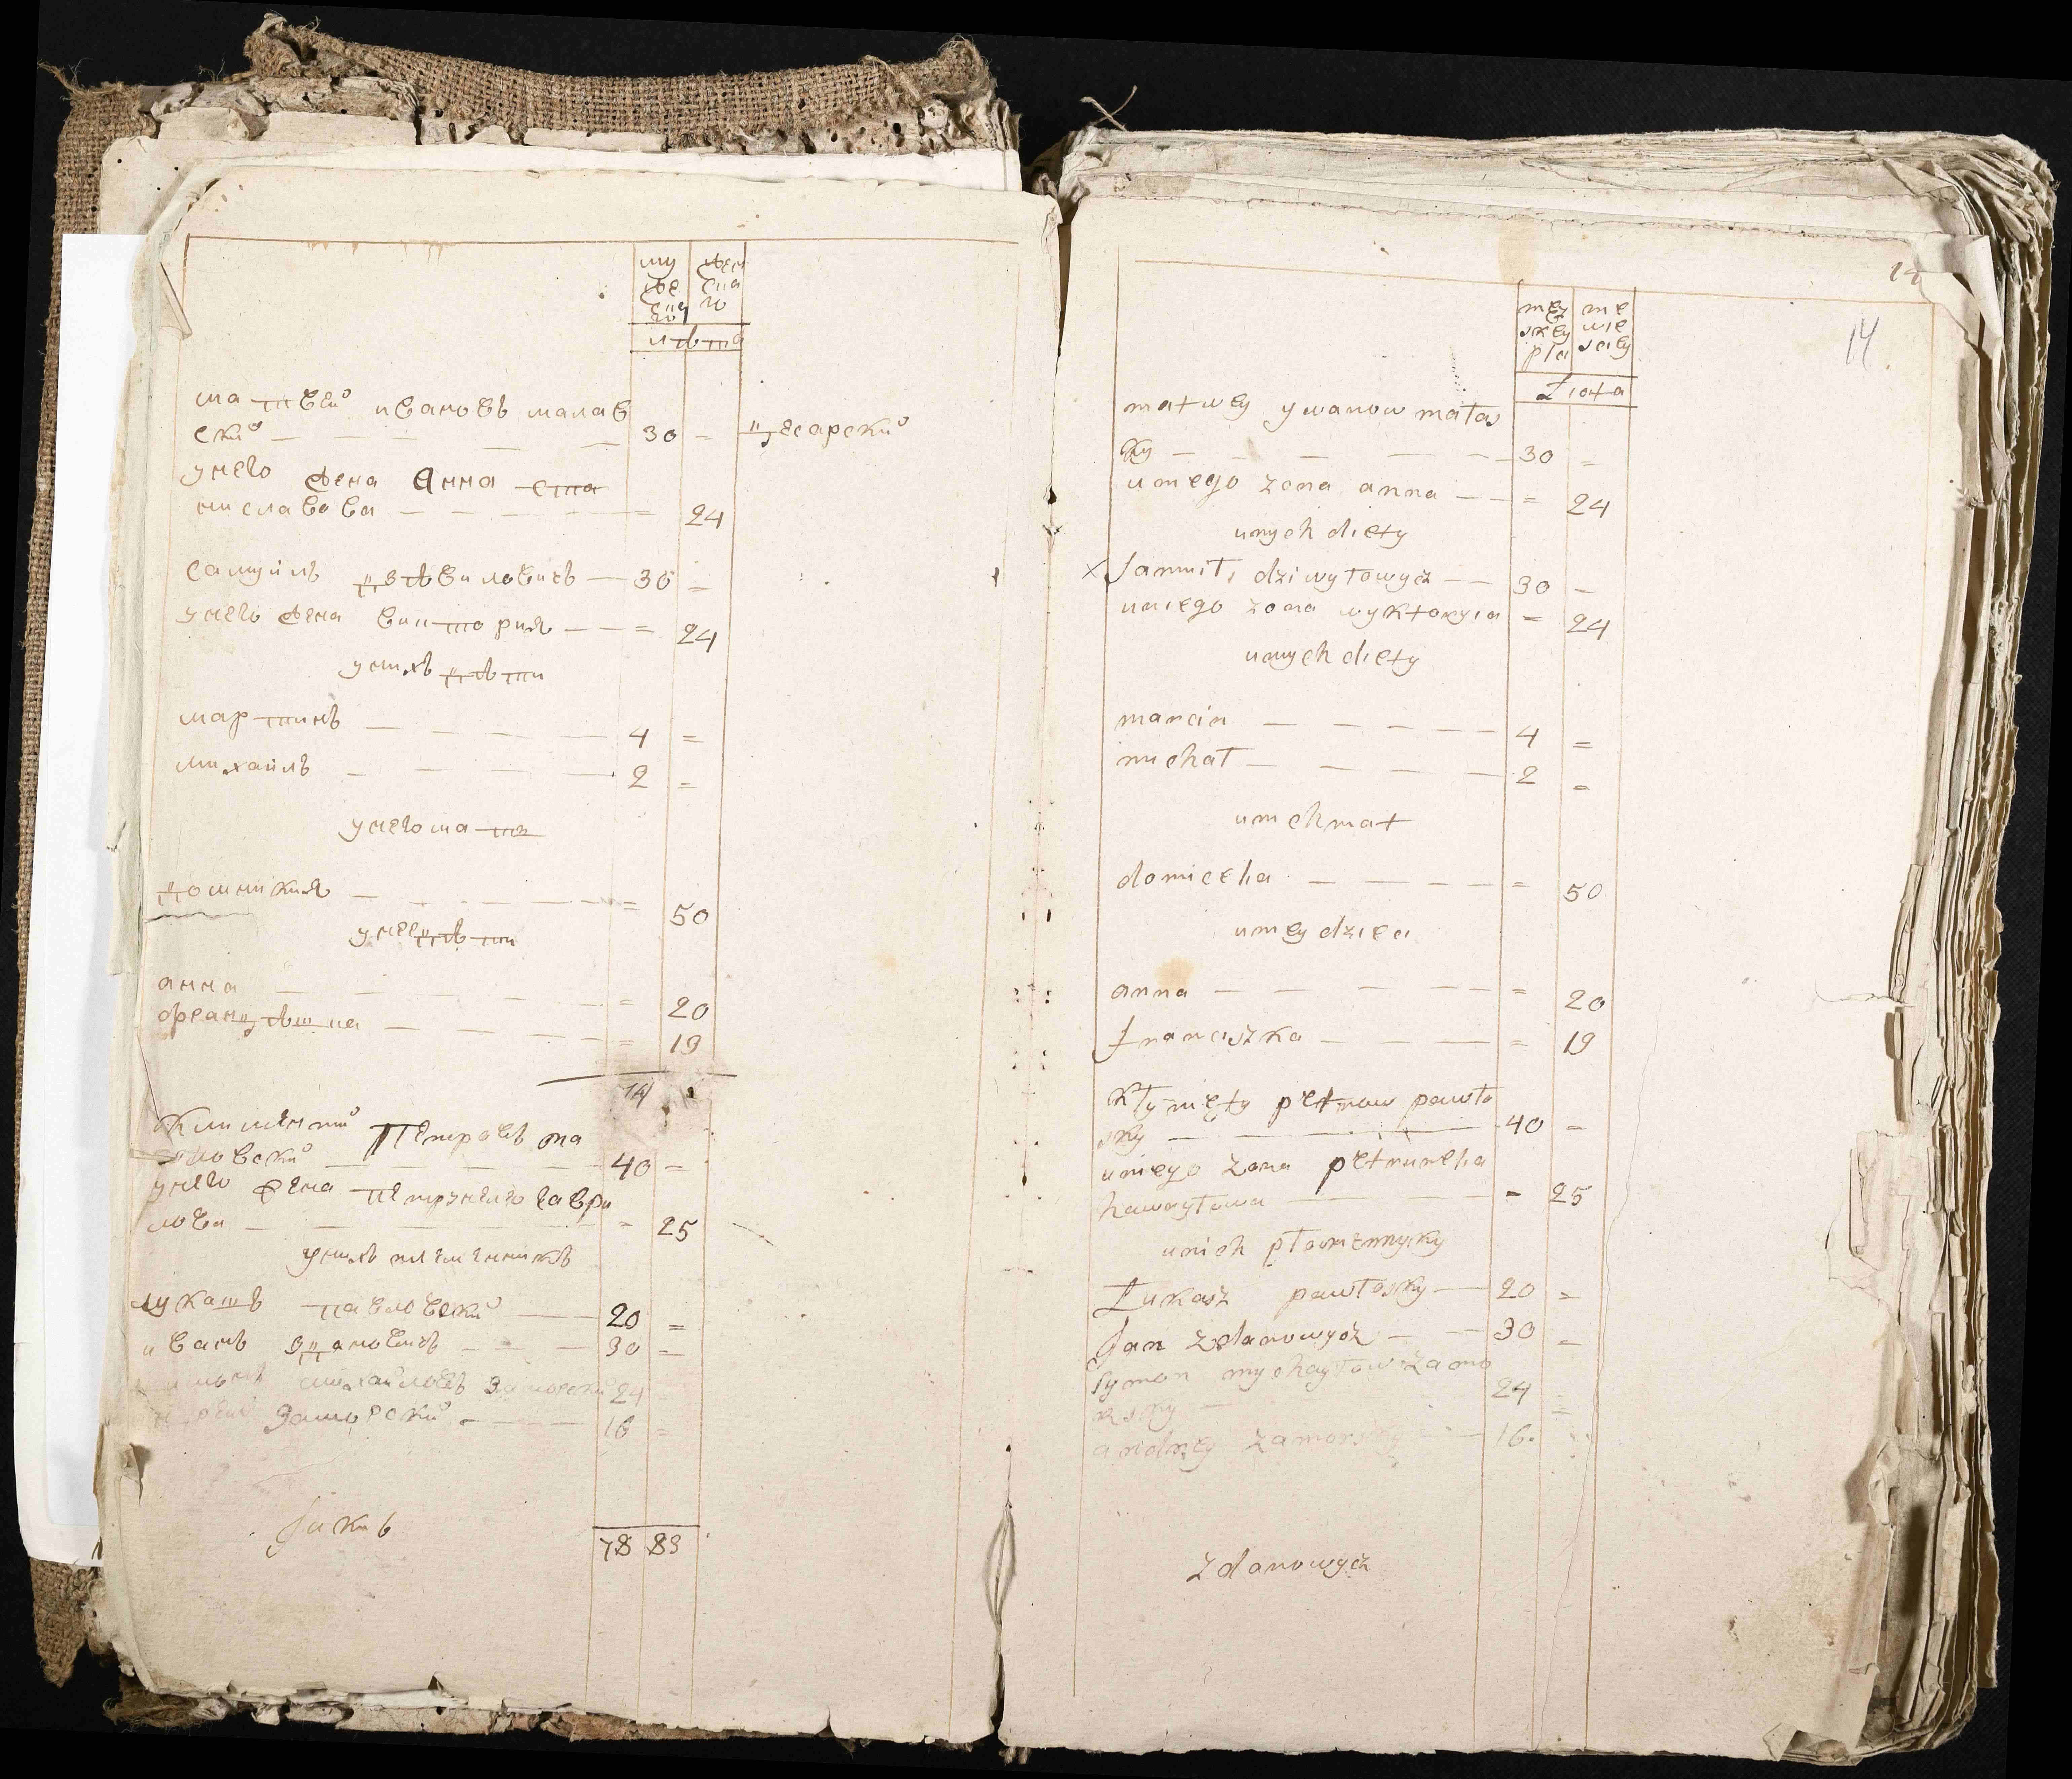 му
же
ско
го
жен
ска
го
лѣта
матвей ивановъ малав
ский 30 = цесарский
унего жена Анна ста
ниславова = 24
самуилъ дзѣвиловичъ 30 =
унего жена викториꙗ = 24
унихъ дѣти
мартинъ 4 =
михаилъ 2 =
унего мать
доминикиꙗ = 50
унее дѣти
анна = 20
францѣшка = 19
Климентий Петровъ па
вловский 40 =
унего жена петрунеля гаври
лова = 25
унихъ племенниковъ
лукашъ павловский 20 =
иванъ зданович 30 =
михайловъ заморский 24
заморский 16 =
78 83
14
14
męz
skey
pla
ne
wie
sciey
Liata
matwey ywanow matas
ky 30 =
uniego zona anna = 24
unych diety
x Samuił, dziwyłowycz 30 =
uniego zona wyktoryia = 24
unych diety
marcin 4 =
michał 2 =
unich mat
domicela = 50
uniey dzieci
anna = 20
franciszka = 19
Kłymęty petrow pawło
sky 40 =
uniego zona petrunela
hawryłowa = 25
unich płamennyky
Łukasz pawłosky 20 =
Jan zdanowycz 30 =
Symon mychayłow zamo
rsky 24 =
andrzey zamorsky 16
zdanowycz